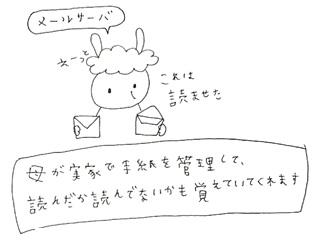 メールサーバ
えーっと
これは
読ませた
母が実家で手紙を管理して、
読んだか読んでないかも覚えていてくれます